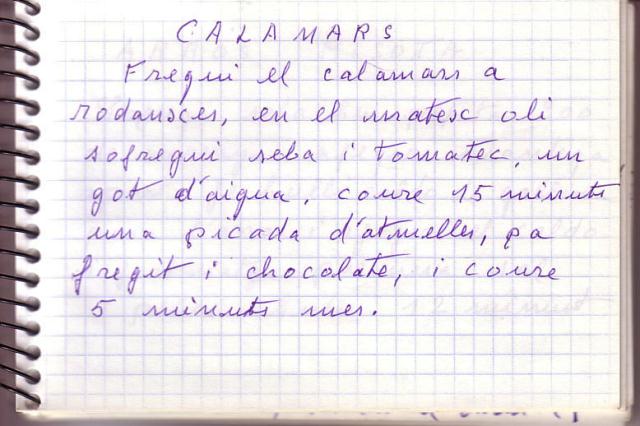 CALAMARS
Fregui el calamars a
rodanxes, en el matesc oli
sofregui seba i tomatec, un
got d'aigua, coure 15 minuts
una picada d'atmelles, pa
fregit i chocolate, i coure
5 minuts mes.